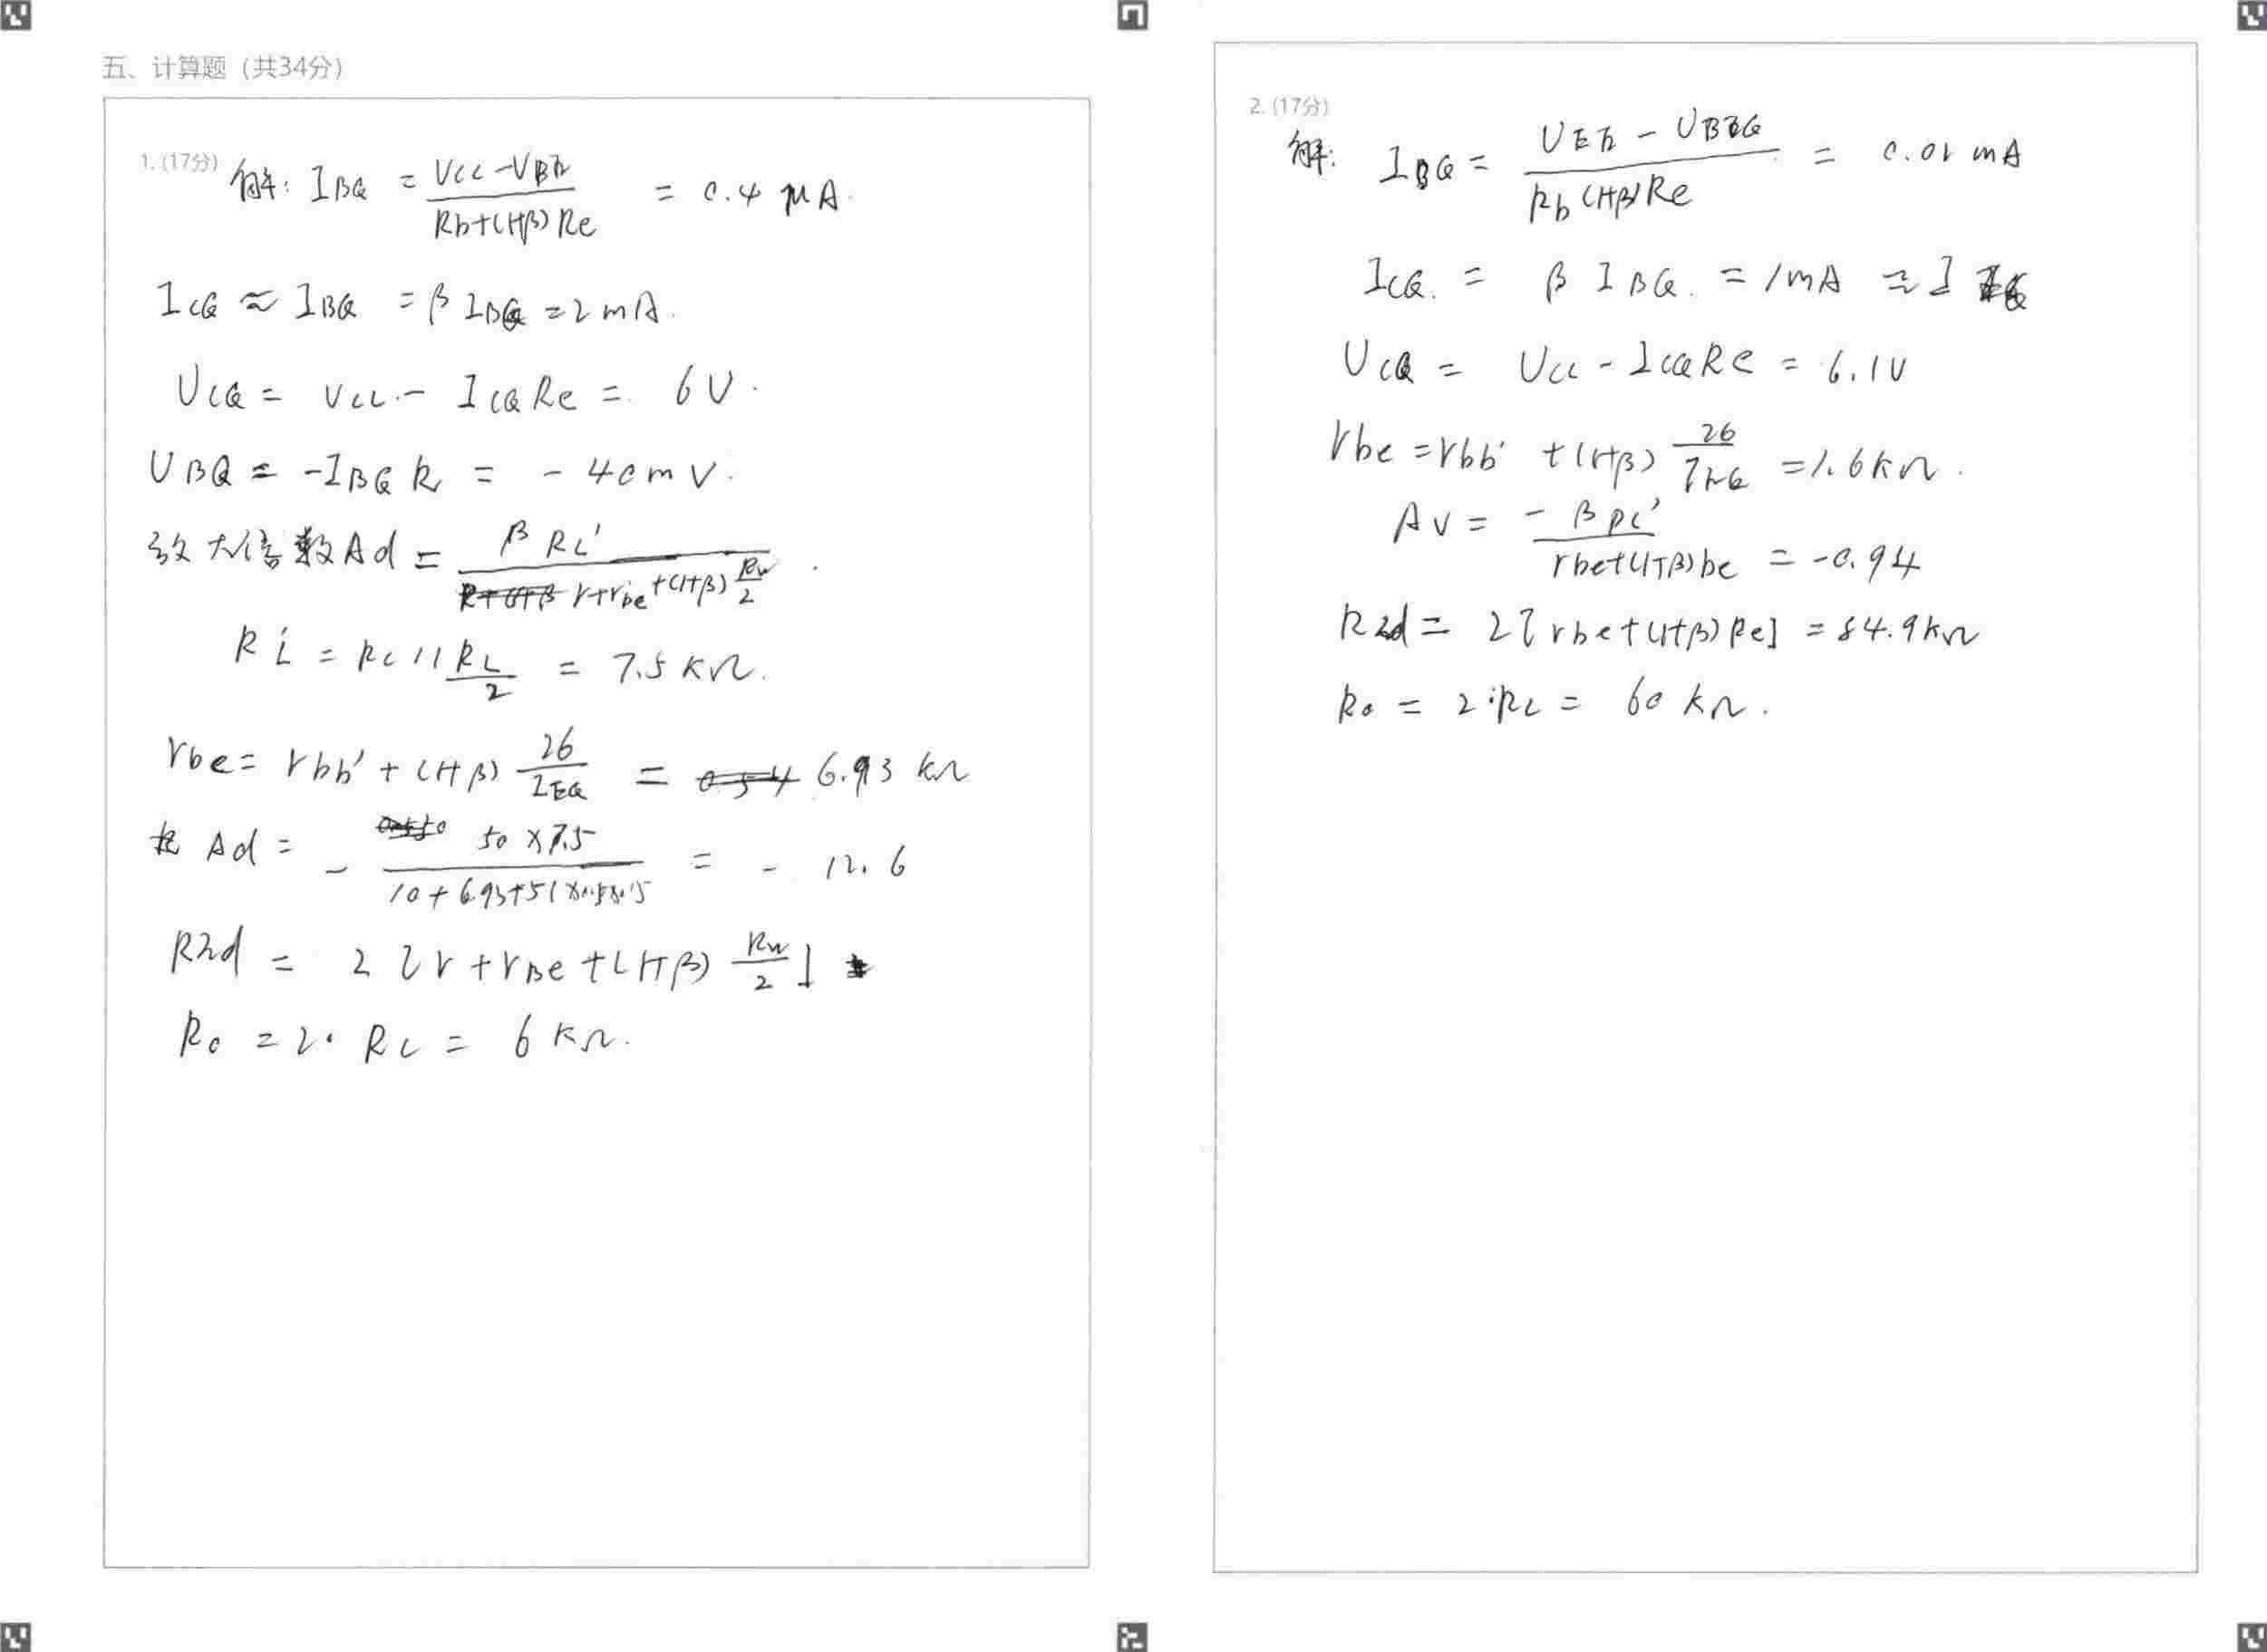 五、计算题（共34分）
1. (17分) 解: I_BQ = (V_CC - V_BE) / (Rb+(1+β)Re) = 0.4 μA.
I_CQ ≈ I_BQ = β I_BQ = 2 mA.
U_CQ = V_CC - I_CQ Rc = 6V.
U_BQ = -I_BQ R = -40mV.
放大倍数 Ad = β RL' / (r+rbe+(1+β) Rw/2)
RL' = Rc // RL/2 = 7.5 KΩ.
rbe = rbb' + (1+β) 26/I_EQ = 6.93 kΩ
Ad = - 50×7.5 / = - 12.6
Rid = 2[r+rBe+(1+β) Rw/2]
Ro = 2·Rc = 6 KΩ.
2. (17分)
解: I_BQ = (U_EE - U_BEQ) / (Rb(1+β)Re) = 0.02 mA
I_CQ. = β I_BQ. = 1mA ≈ I_EQ
U_CQ = U_CC - I_CQ Rc = 6.1V
rbe = rbb' + (1+β) 26/I_EQ = 1.6KΩ.
AV = - βRL' / (rbe+(1+β)be) = -0.94
Rid = 2[rbe+(1+β)Re] = 84.9KΩ
Ro = 2·Rc = 60 KΩ.